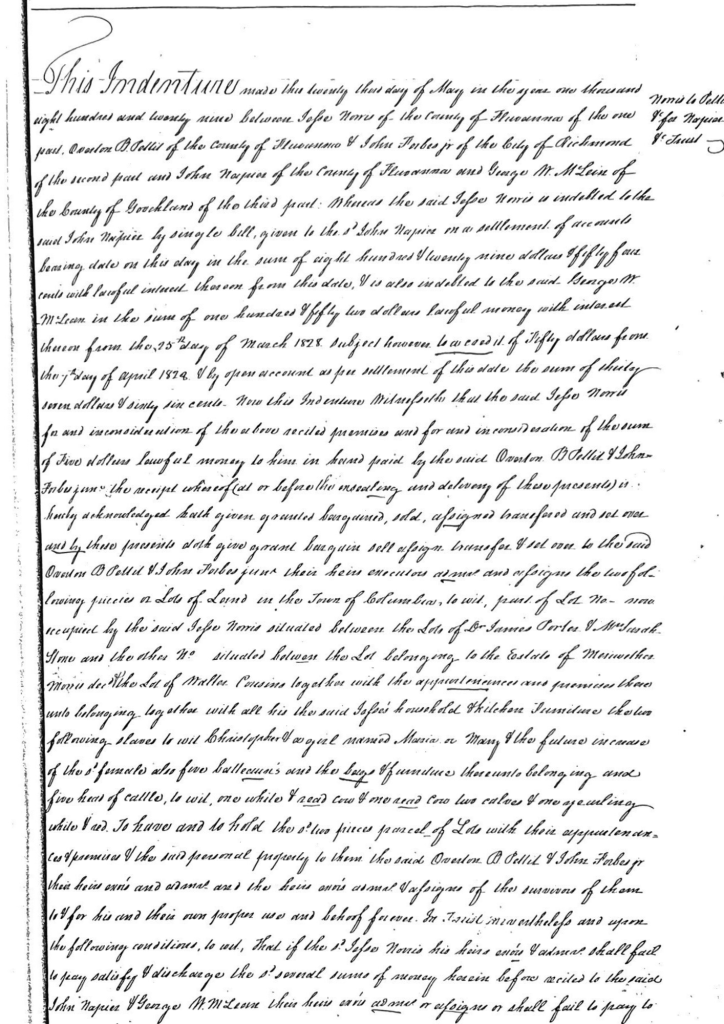 This Indenture made this twenty third day of May in the year one thousand
eight hundred and twenty nine between Jesse Norris of the County of Fluvanna of the one
part, Overton B Pettit of the County of Fluvanna & John Forbes jr of the City of Richmond
of the second part and John Napier of the County of Fluvanna and George W. McLein of
the County of Goochland of the third part: Whereas the said Jesse Norris is indebted to the
said John Napier by single bill, given to the sd John Napier on a settlement of accounts
bearing date on this day in the sum of eight hundred & twenty nine dollars & fifty four
cents with lawful interest thereon from this date, & is also indebted to the said George W.
McLean in the sum of one hundred & fifty two dollars lawful money with interest
thereon from the 25th day of March 1828 subject however to a credit of Fifty dollars from
the 7th day of april & by open account as per settlement of this date the sum of thirty
seven dollars & sixty six cents. Now this Indenture Witnesseth that the said Jesse Norris
for and inconsideration of the above recited premises and for and in consideration of the sum
of Five dollars lawful money to him in hand paid by the said Overton B Pettit & John
Forbes junr the receipt whereof (at or before the ensealing and delivery of these presents) is
hereby acknowledged hath given granted bargained, sold, assigned transfered and set over
and by these presents doth give grant bargain sell assign transfer & set over to the said
Overton B Pettit & John Forbes junr their heirs executors admrs and assigns the two fol-
lowing pieces or Lots of Land in the Town of Columbia, to wit, part of Lot No- now
occupied by the said Jesse Norris situated between the Lots of Dr James Porter & Mrs Sarah
Stone and the other No situated between the Lot belonging to the Estate of Meriwether
Morris decd & the Lot of Walter Cousins together with the appurtenances and premises there
unto belonging together with all his the said Jesse's household & kitchen Furniture the two
following slaves to wit Christopher & a girl named Maria or Mary & the future increase
of the sd female also five and the & furniture thereunto belonging and
five head of cattle, to wit, one white & read cow & one read cow two calves & one yearling
white & red. To have and to hold the sd two pieces parcel of Lots with their appurtenan-
ces & premises & the said personal property to them the said Overton B Pettit & John Forbes jr
their heirs exors and admrs and the heirs exors admrs & assigns of the survivors of them
to & for his and their own proper use and behoof forever. In Trust nevertheless and upon
the following conditions, to wit, That if the sd Jesse Norris his heirs exors & admrs shall fail
to pay satisfy & discharge the sd several sums of money herein before recited to the said
John Napier & George W. McLean their heirs exors admrs or assigns or shall fail to pay to
Norris to Pettit
& for Napier
&c Trust